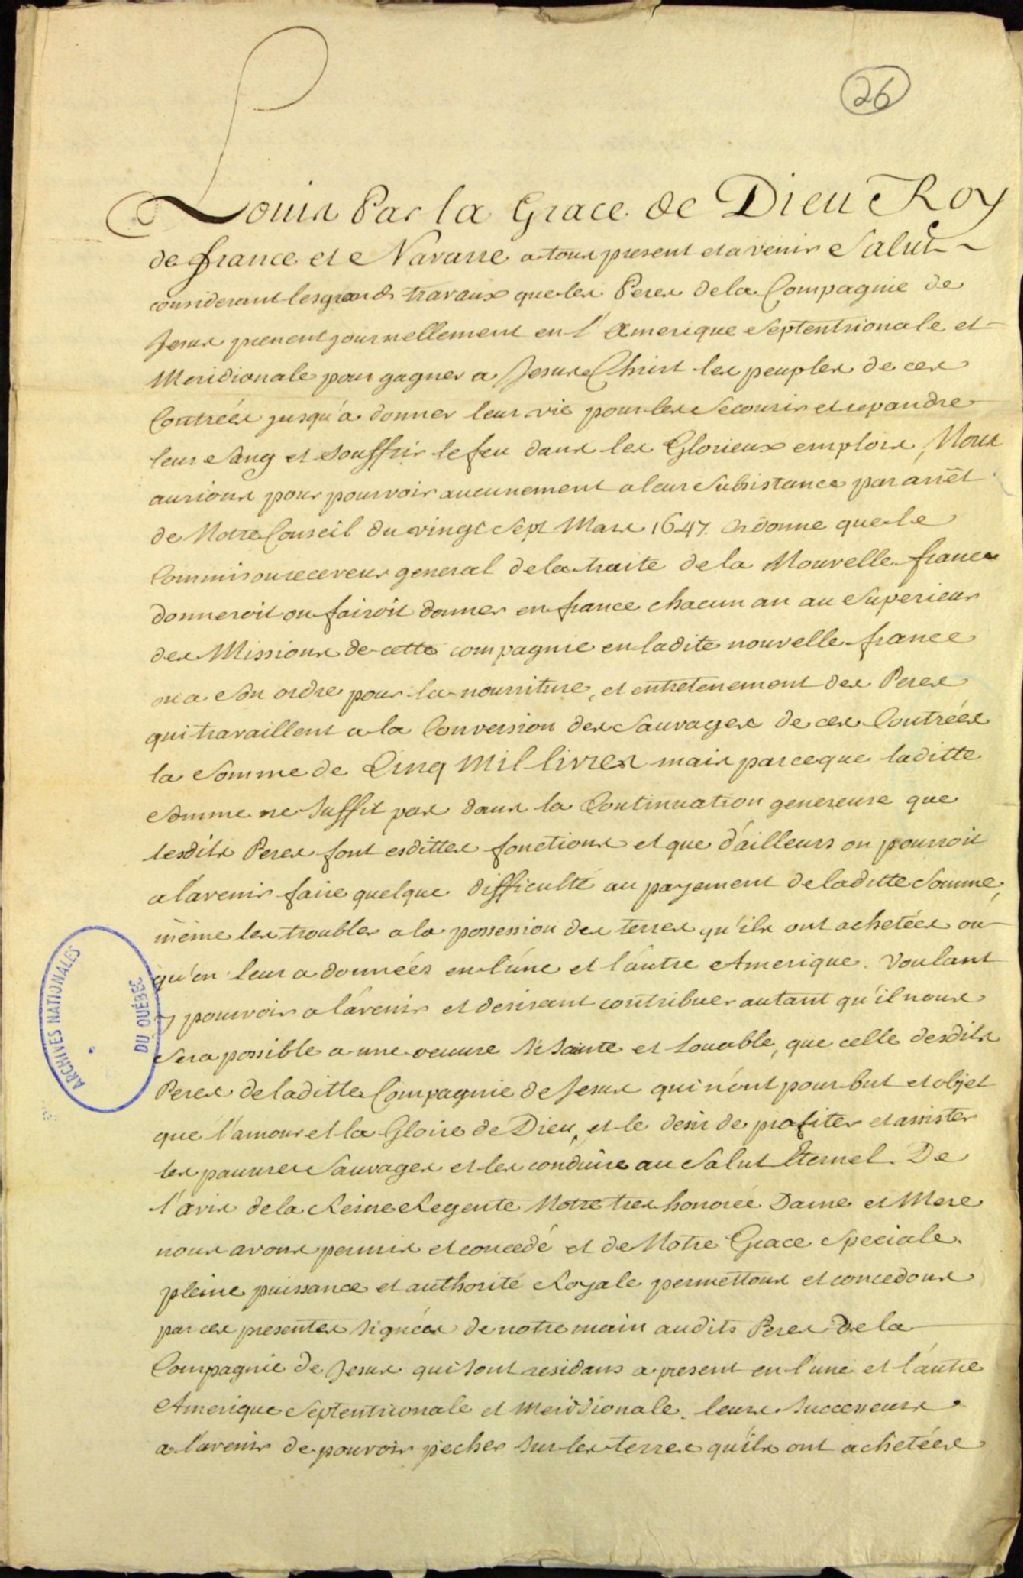 26
Louis Par la Grace de Dieu Roy
de france et Navarre a tous present et avenir Salut
considerant les grands travaux que les Peres de la Compagnie de
Jesus prenent journellement en l'Amerique Septentrionale et
Meridionale pour gagner a Jesus Christ les peuples de ces
Contrées jusqu'a donner leur vie pour les Secourir et repandre
leur Sang et Souffrir le feu dans les Glorieux emplois, Nous
aurions pour pourvoir aucunement a leur Subsistance par arrêt
de Notre Conseil du vingt Sept Mars 1647. Ordonne que le
Commis ou receveur general de la traite de la Nouvelle france
donneroit ou fairoit donner en france chacun an au Superieur
des Missions de cette compagnie en ladite nouvelle france
ou a Son ordre pour la nourriture, et entretenement des Peres
qui travaillent a la Conversion des Sauvages de ces Contrées
la Somme de Cinq Mil livres mais parceque laditte
Somme ne Suffit pas dans la Continuation genereuse que
lesdits Peres font esdittes fonctions et que d'ailleurs on pourroit
a l'avenir faire quelque difficulté au payement de laditte Somme,
même les troubler a la possession des terres qu'ils ont achetées ou
qu'on leur a données en l'une et l'autre Amerique. Voulant
y pourvoir a l'avenir et desirant contribuer autant qu'il nous
Sera possible a une oeuvre Si Sainte et Louable, que celle desdits
Peres de laditte Compagnie de Jesus qui n'ont pour but et objet
que l'amour et la Gloire de Dieu, et le desir de profiter et assister
les pauvres Sauvages et les conduire au Salut Eternel. De
l'avis de la Reine Regente Notre tres honorée Dame et Mere
nous avons permis et concedé et de Notre Grace Speciale.
pleine puissance et authorité Royale permettons et concedons
par ces presentes Signées de notre main audits Peres de la
Compagnie de Jesus qui Sont residans a present en l'une et l'autre
Amerique Septentrionale et Meridionale. leurs Successeurs
a l'avenir de pouvoir pêcher Sur les terres qu'ils ont achetées
ARCHIVES NATIONALES
DU QUÉBEC